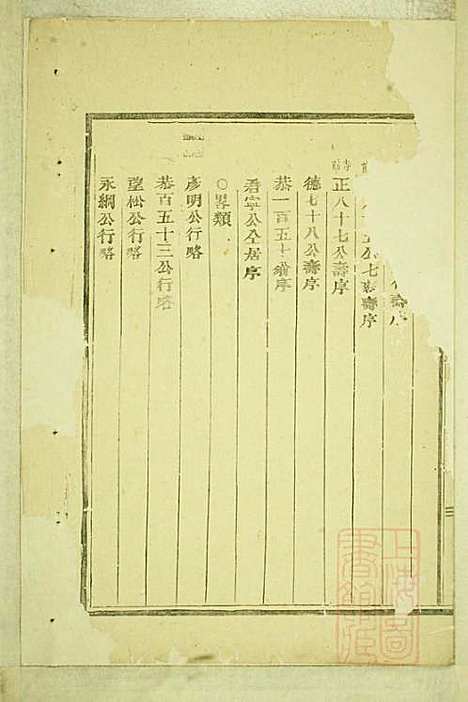 公七𥙷壽序
正八十七公壽序
德七十八公壽序
恭一百五十翁序
君寧公仝居序
○畧類
彥明公行略
恭百五十三公行略
望松公行略
永綱公行略
上海圖書館藏